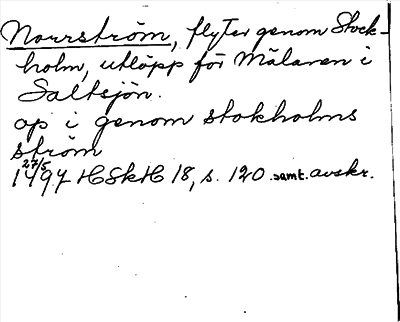 Norrström, flyter genom Stock-
holm, utlopp för Mälaren i
Saltsjön.
op i genom stokholms
ström
27/5
1497 HSkH 18, s. 120. samt. avskr.